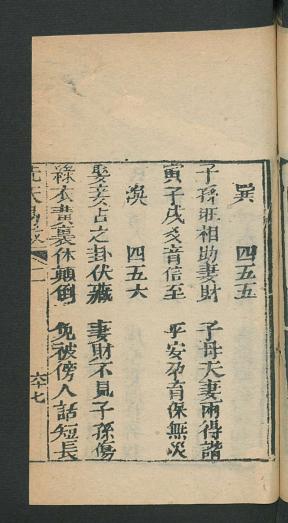 巽　四五五
子孫旺相助妻財　子母夫妻兩得諧
寅子戌爻音信至　平安孕育保無災
渙　四五六
娶妻占之卦伏藏　妻財不見子孫傷
綠衣畫裏休顛倒　免被傍人話短長
六十七